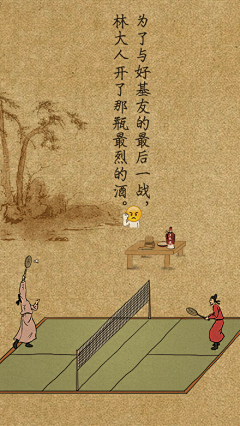 为了与好基友的最后一战，
林大人开了那瓶最烈的酒。